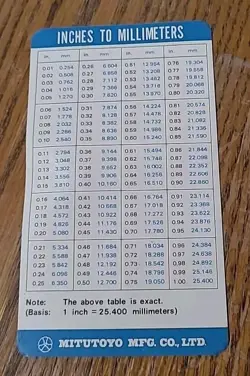 INCHES TO MILLIMETERS
in. mm in. mm in. mm in. mm
0.01 0.254 0.26 6.604 0.51 12.954 0.76 19.304
0.02 0.508 0.27 6.858 0.52 13.208 0.77 19.558
0.03 0.762 0.28 7.112 0.53 13.462 0.78 19.812
0.04 1.016 0.29 7.366 0.54 13.716 0.79 20.066
0.05 1.270 0.30 7.620 0.55 13.970 0.80 20.320
0.06 1.524 0.31 7.874 0.56 14.224 0.81 20.574
0.07 1.778 0.32 8.128 0.57 14.478 0.82 20.828
0.08 2.032 0.33 8.382 0.58 14.732 0.83 21.082
0.09 2.286 0.34 8.636 0.59 14.986 0.84 21.336
0.10 2.540 0.35 8.890 0.60 15.240 0.85 21.590
0.11 2.794 0.36 9.144 0.61 15.494 0.86 21.844
0.12 3.048 0.37 9.398 0.62 15.748 0.87 22.098
0.13 3.302 0.38 9.652 0.63 16.002 0.88 22.352
0.14 3.556 0.39 9.906 0.64 16.256 0.89 22.606
0.15 3.810 0.40 10.160 0.65 16.510 0.90 22.860
0.16 4.064 0.41 10.414 0.66 16.764 0.91 23.114
0.17 4.318 0.42 10.668 0.67 17.018 0.92 23.368
0.18 4.572 0.43 10.922 0.68 17.272 0.93 23.622
0.19 4.826 0.44 11.176 0.69 17.526 0.94 23.876
0.20 5.080 0.45 11.430 0.70 17.780 0.95 24.130
0.21 5.334 0.46 11.684 0.71 18.034 0.96 24.384
0.22 5.588 0.47 11.938 0.72 18.288 0.97 24.638
0.23 5.842 0.48 12.192 0.73 18.542 0.98 24.892
0.24 6.096 0.49 12.446 0.74 18.796 0.99 25.146
0.25 6.350 0.50 12.700 0.75 19.050 1.00 25.400
Note: The above table is exact.
(Basis: 1 inch = 25.400 millimeters)
MITUTOYO MFG. CO., LTD.